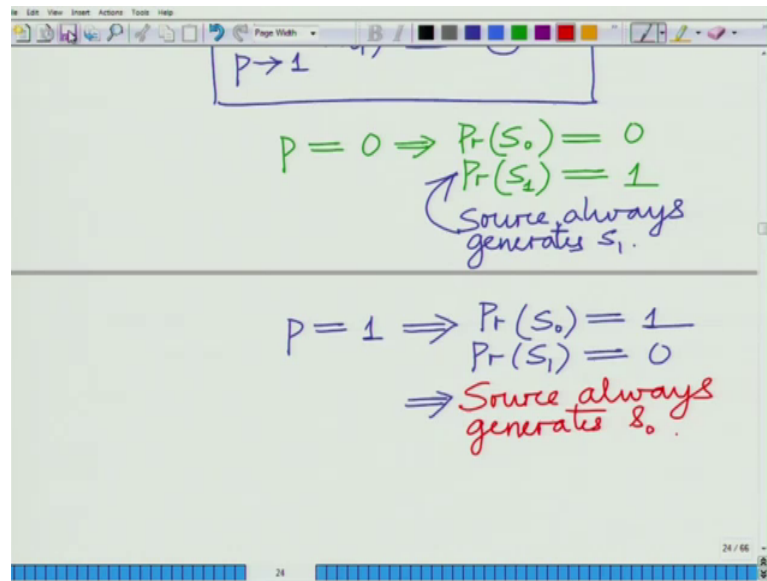 File Edit View Insert Actions Tools Help
Page Width
B I
P → 1
P = 0 ⇒ Pr(S₀) = 0
Pr(S₁) = 1
Source always
generates S₁.
P = 1 ⇒ Pr(S₀) = 1
Pr(S₁) = 0
⇒ Source always
generates S₀.
24 / 66
24